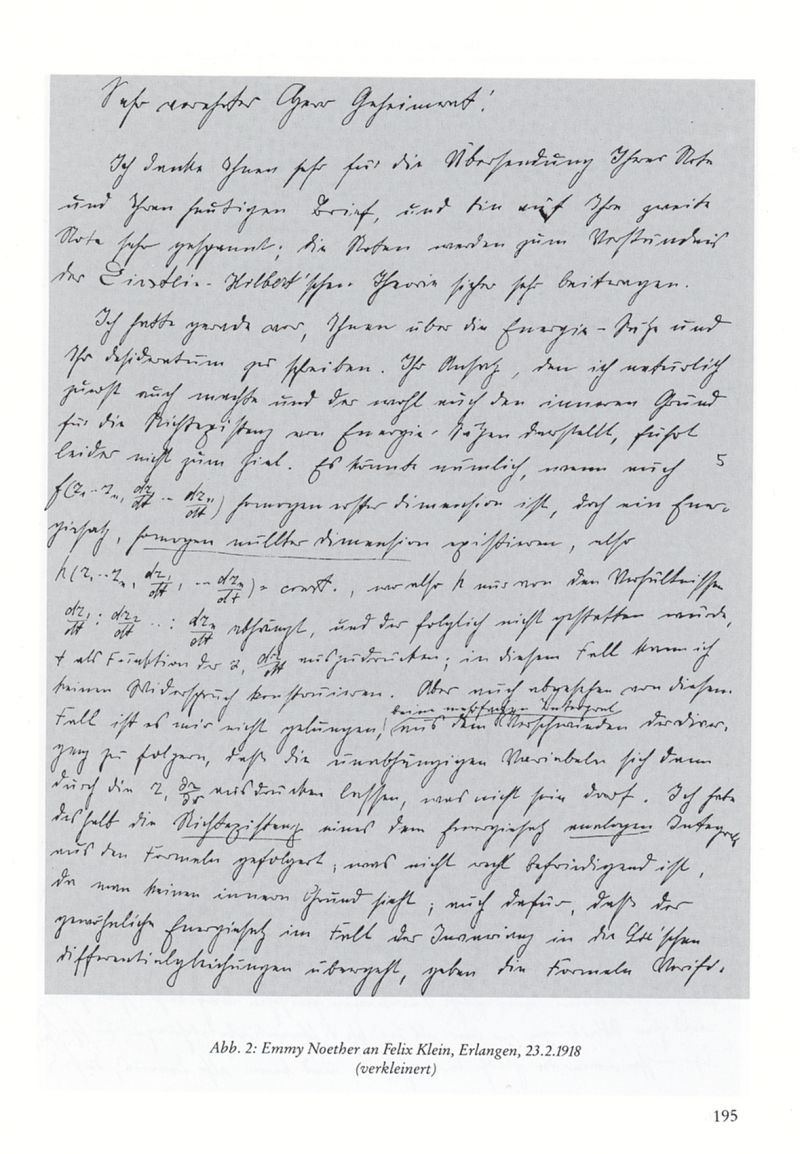 Sehr verehrter Herr Geheimrat!
Ich danke Ihnen sehr für die Übersendung Ihrer Note
und Ihren heutigen Brief, und bin auf Ihre zweite
Note sehr gespannt; die Noten werden zum Verständnis
der Einstein-Hilbert'schen Theorie sicher sehr beitragen.
Ich hatte gerade vor, Ihnen über die Energie-Sätze und
Ihr desideratum zu schreiben. Ihr Ansatz, den ich natürlich
zuerst auch machte und der wohl auch den inneren Grund
für die Nichtexistenz von Energie-Sätzen darstellt, führt
leider nicht zum Ziel. Es könnte nämlich, wenn auch 5
f(z₁..zₙ, dz₁/dt .. dzₙ/dt) homogen erster Dimension ist, doch ein Ener-
giesatz, homogen nullter Dimension existieren, also
h(z₁..zₙ, dz₁/dt, .. dzₙ/dt) = const., wo also h nur von den Verhältnissen
dz₁/dt : dz₂/dt ..: dzₙ/dt abhängt, und der folglich nicht gestatten würde,
t als Funktion der z, dz/dt auszudrücken; in diesem Fall kann ich
keinen Widerspruch konstruieren. Aber auch abgesehen von diesem
Fall ist es mir nicht gelungen, aus dem Verschwinden der Diver-
genz zu folgern, daß die unabhängigen Variabeln sich dann
durch die z, ∂z/∂x ausdrücken lassen, was nicht sein darf. Ich habe
deshalb die Nichtexistenz eines dem Energiesatz analogen Integrals
aus den Formeln gefolgert; was nicht recht befriedigend ist,
da man keinen inneren Grund sieht; auch dafür, daß der
gewöhnliche Energiesatz im Fall der Invarianz in die Lie'schen
Differentialgleichungen übergeht, geben die Formeln Verifi-
Abb. 2: Emmy Noether an Felix Klein, Erlangen, 23.2.1918
(verkleinert)
195